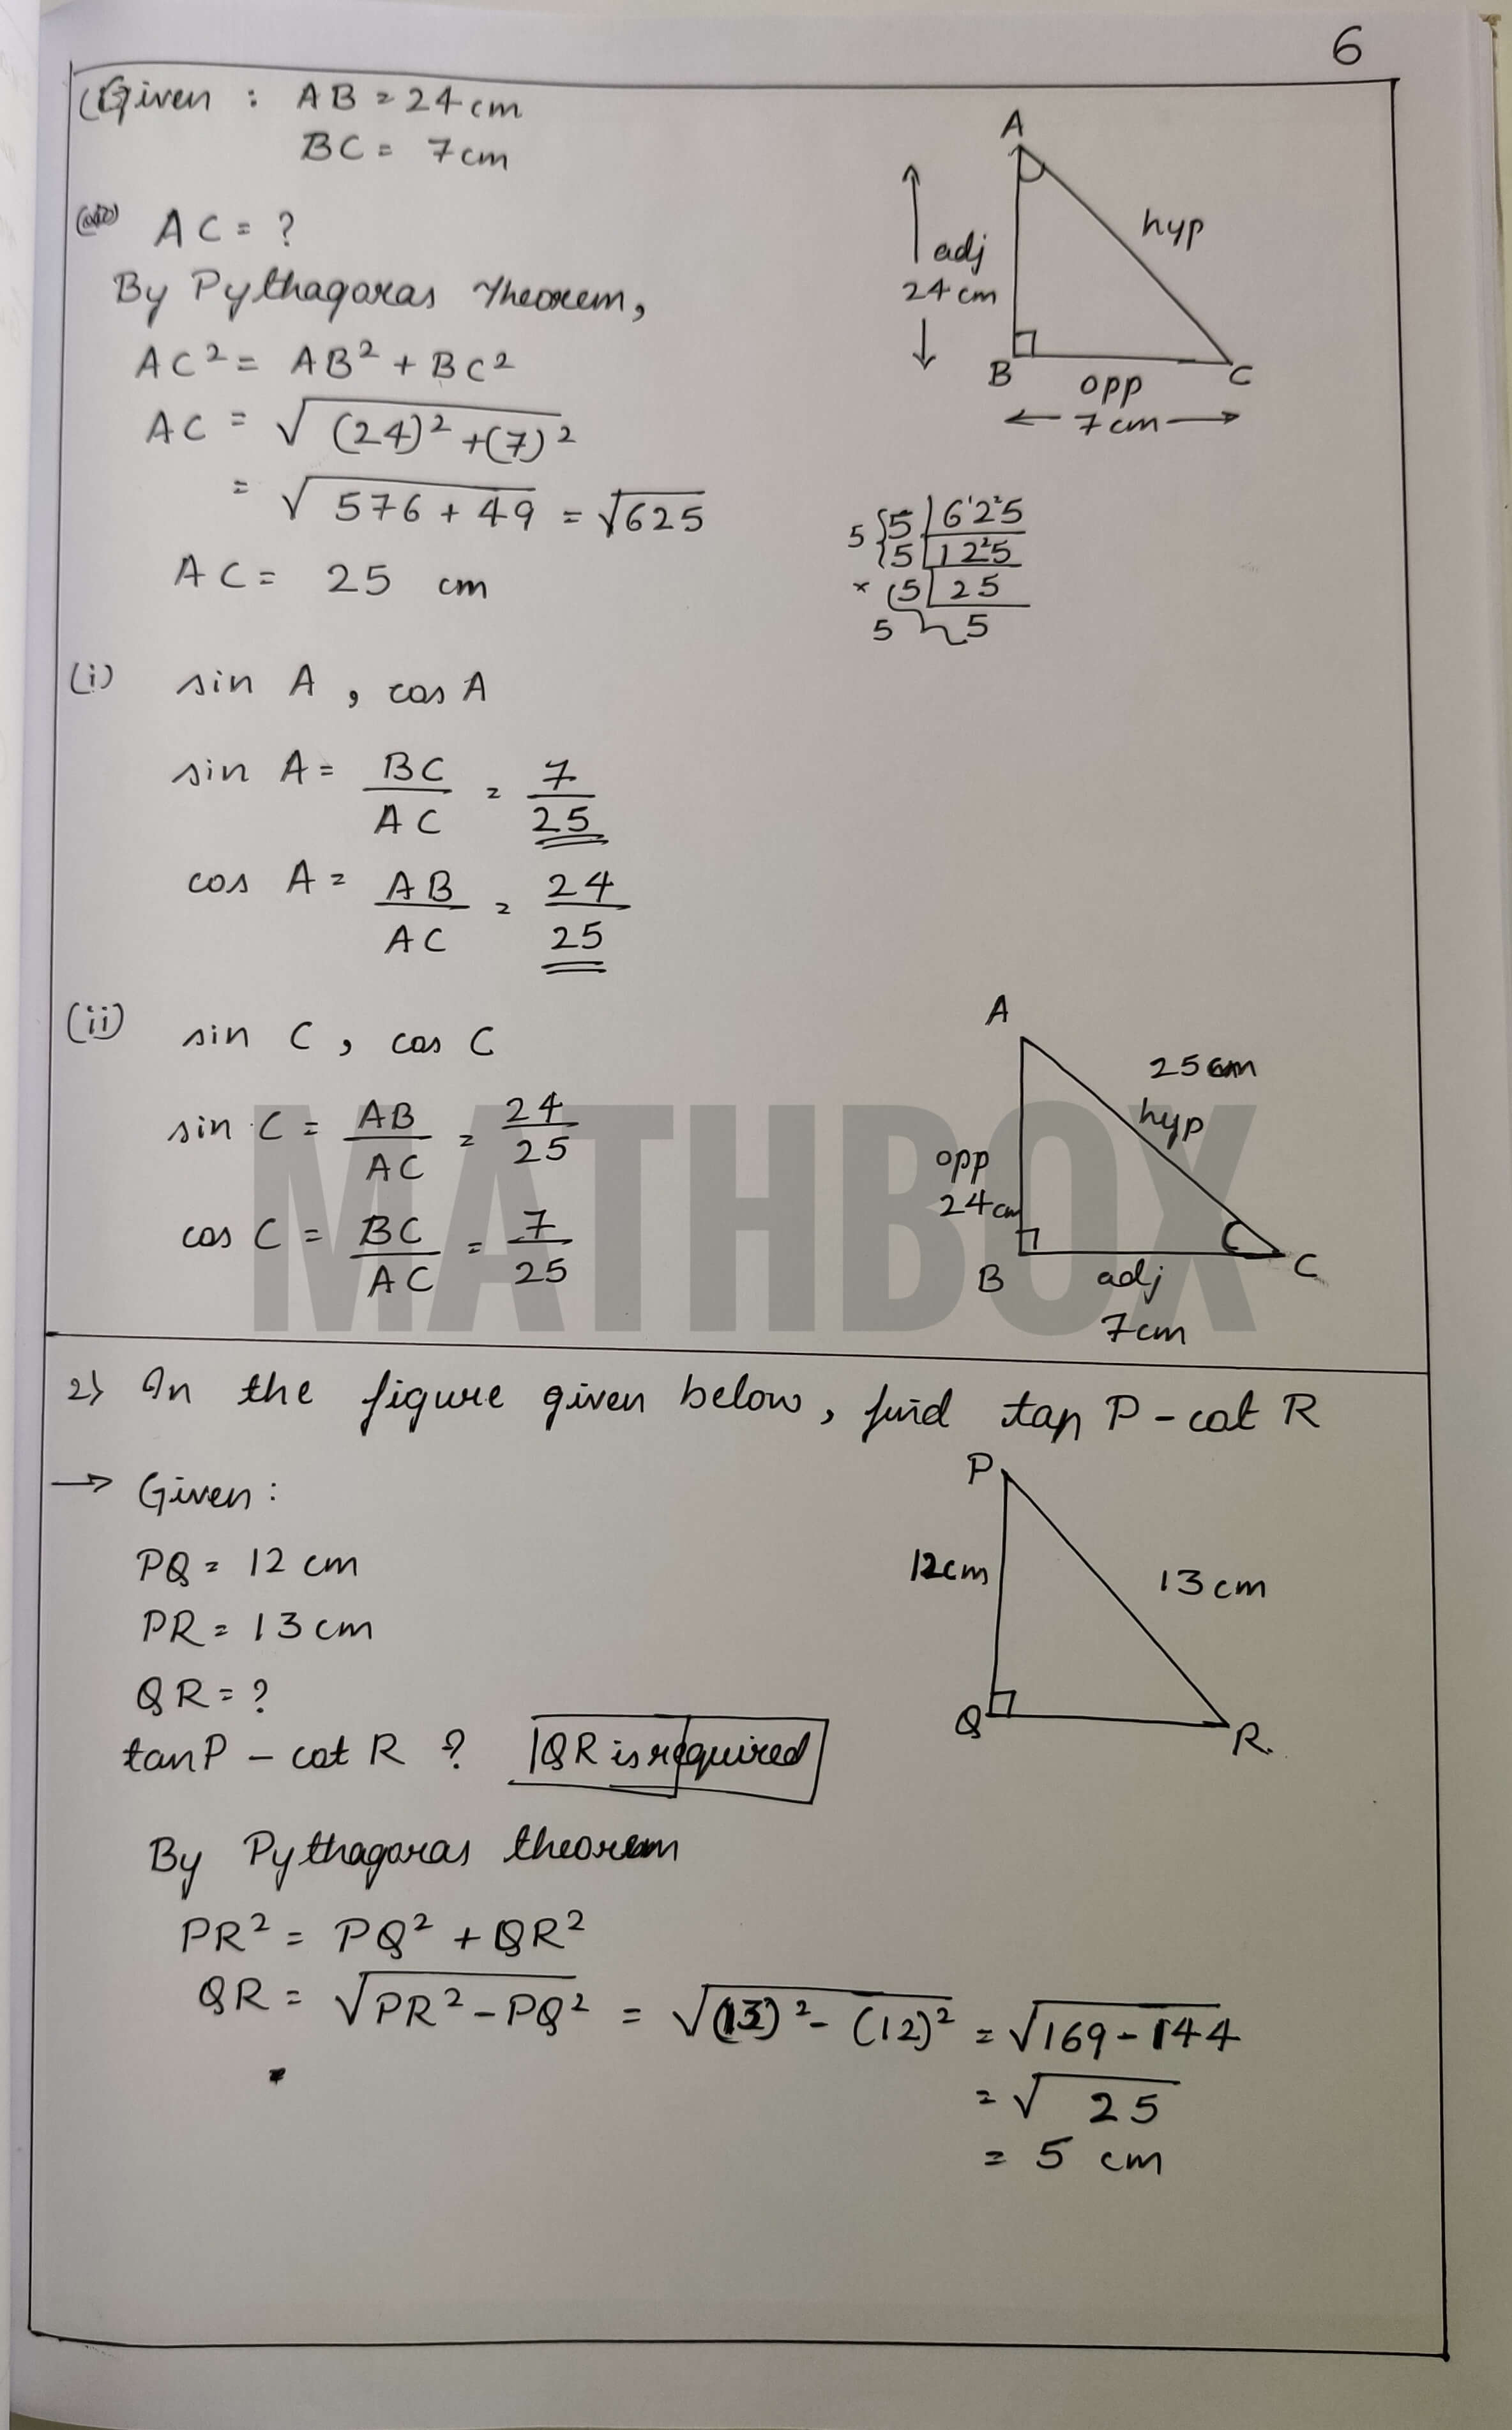 6
Given : AB = 24 cm
BC = 7 cm
AC = ?
By Pythagoras Theorem,
AC² = AB² + BC²
AC = √(24)² + (7)²
= √576 + 49 = √625
AC = 25 cm
A
adj
24 cm
hyp
B
opp
C
7 cm
5 5 | 625
5 | 125
× 5 | 25
5 5
(i) sin A , cos A
sin A = BC/AC = 7/25
cos A = AB/AC = 24/25
(ii) sin C , cos C
sin C = AB/AC = 24/25
cos C = BC/AC = 7/25
A
25 cm
hyp
opp
24 cm
B
adj
C
7 cm
MATHBOX
2) In the figure given below, find tan P - cot R
→ Given :
PQ = 12 cm
PR = 13 cm
QR = ?
tan P - cot R ? QR is required
P
12cm
13 cm
Q
R
By Pythagoras theorem
PR² = PQ² + QR²
QR = √PR² - PQ² = √(13)² - (12)² = √169 - 144
= √25
= 5 cm